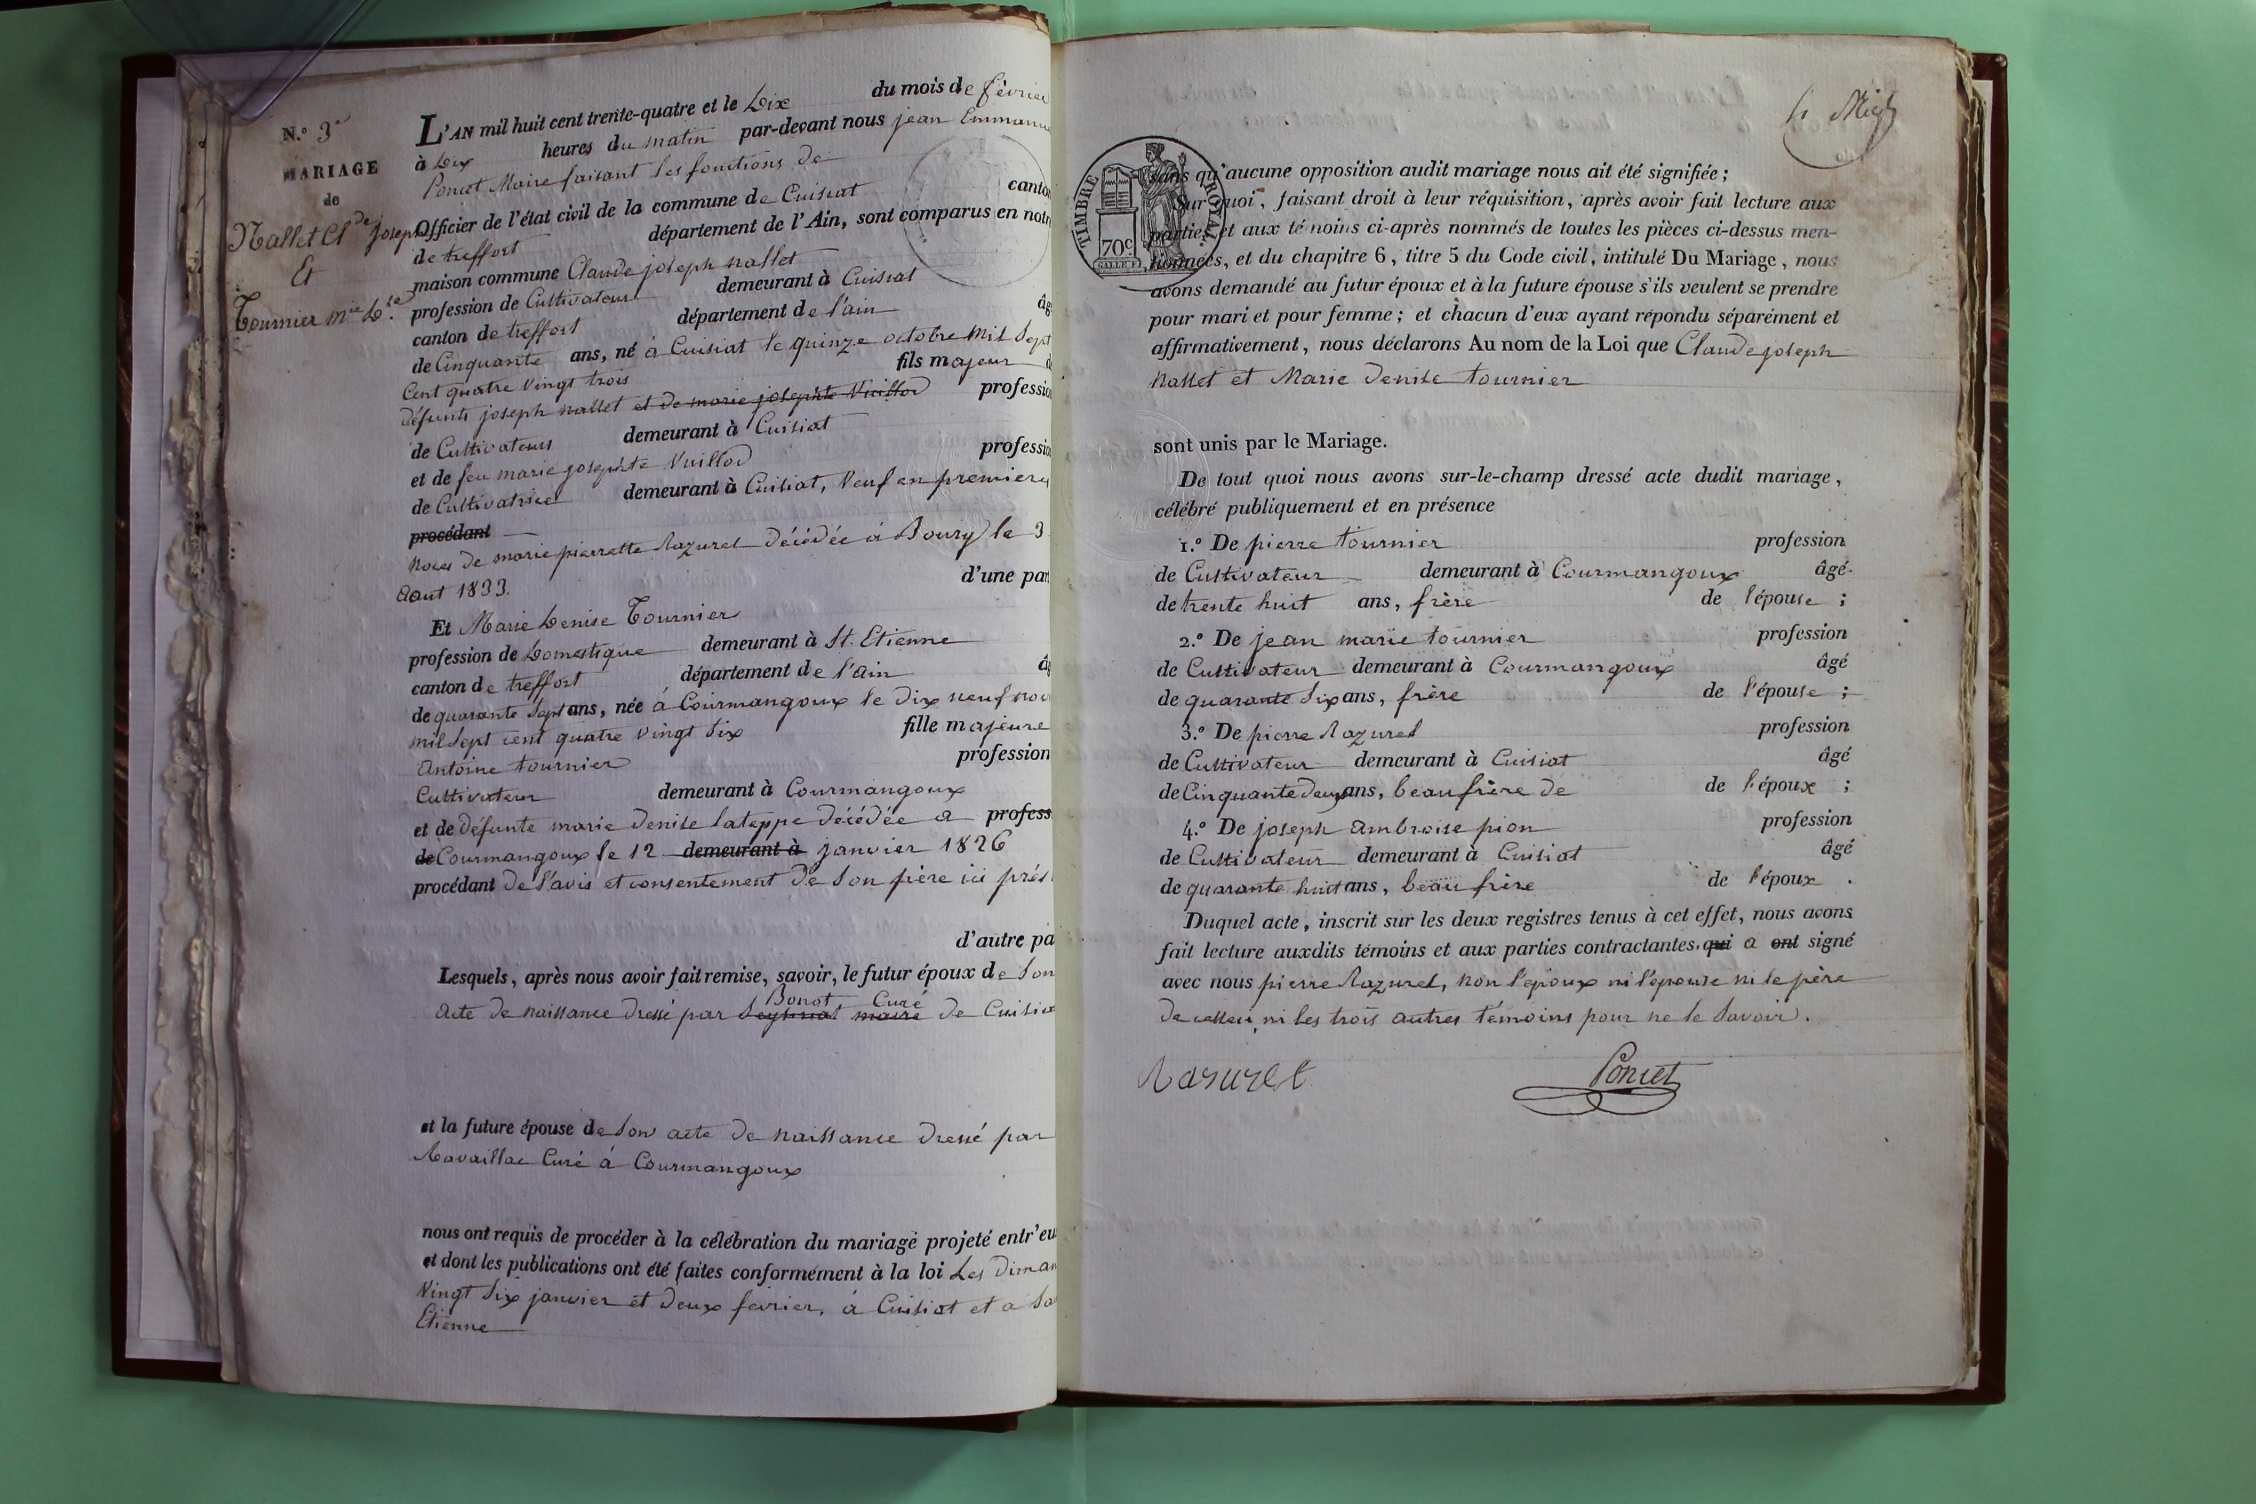 N.° 3
MARIAGE
de
Nallet Cl.de joseph
Et
Tournier m.ie D.se
L'AN mil huit cent trente-quatre et le Dix du mois de février
à Dix heures du matin par-devant nous jean Emmanu
Poncet Maire faisant les fonctions de
Officier de l'état civil de la commune de Cuisiat canton
de treffort département de l'Ain, sont comparus en notre
maison commune Claude joseph nallet
profession de Cultivateur demeurant à Cuisiat
canton de treffort département de l'ain âg
de Cinquante ans, né à Cuisiat le quinze octobre mil sept
Cent quatre vingt trois fils majeur d
défunts joseph nallet et de marie josephte Vuillod profession
de Cultivateurs demeurant à Cuisiat
et de feu marie josephte Vuillod profession
de Cultivatrice demeurant à Cuisiat, Veuf en premieres
procédant
noces de marie pierrette Razurel décédée à Bourg le 3
Aout 1833. d'une par
Et Marie Denise Tournier
profession de Domestique demeurant à St. Etienne
canton de treffort département de l'ain âg
de quarante sept ans, née à Courmangoux le dix neuf nov
mil sept cent quatre vingt six fille majeure
Antoine tournier profession
Cultivateur demeurant à Courmangoux
et de défunte marie denise lateppe décédée a profess
de Courmangoux le 12 demeurant à janvier 1826
procédant de l'avis et consentement de son père ici prés
d'autre pa
Lesquels, après nous avoir fait remise, savoir, le futur époux de son
Bonot Curé
acte de naissance dressé par maire de Cuisia
et la future épouse de son acte de naissance dressé par
Ravaillac Curé à Courmangoux
nous ont requis de procéder à la célébration du mariage projeté entr'eu
et dont les publications ont été faites conformément à la loi Les diman
Vingt six janvier et deux fevrier, à Cuisiat et a Sa
Etienne
TIMBRE ROYAL.
70c
sans qu'aucune opposition audit mariage nous ait été signifiée ;
Sur quoi, faisant droit à leur réquisition, après avoir fait lecture aux
parties et aux témoins ci-après nommés de toutes les pièces ci-dessus men-
tionnées, et du chapitre 6, titre 5 du Code civil, intitulé Du Mariage, nous
avons demandé au futur époux et à la future épouse s'ils veulent se prendre
pour mari et pour femme ; et chacun d'eux ayant répondu séparément et
affirmativement, nous déclarons Au nom de la Loi que Claude joseph
nallet et Marie denise tournier
sont unis par le Mariage.
De tout quoi nous avons sur-le-champ dressé acte dudit mariage,
célébré publiquement et en présence
1.° De pierre tournier profession
de Cultivateur demeurant à Courmangoux âgé
de trente huit ans, frère de l'épouse ;
2.° De jean marie tournier profession
de Cultivateur demeurant à Courmangoux âgé
de quarante six ans, frère de l'épouse ;
3.° De pierre Razurel profession
de Cultivateur demeurant à Cuisiat âgé
de Cinquante deux ans, beaufrère de de l'époux ;
4.° De joseph ambroise pion profession
de Cultivateur demeurant à Cuisiat âgé
de quarante huit ans, beaufrère de l'époux .
Duquel acte, inscrit sur les deux registres tenus à cet effet, nous avons
fait lecture auxdits témoins et aux parties contractantes. qui a ont signé
avec nous pierre Razurel, non l'époux ni l'épouse ni le père
de celleci, ni les trois autres témoins pour ne le savoir.
Rasurel Poncet